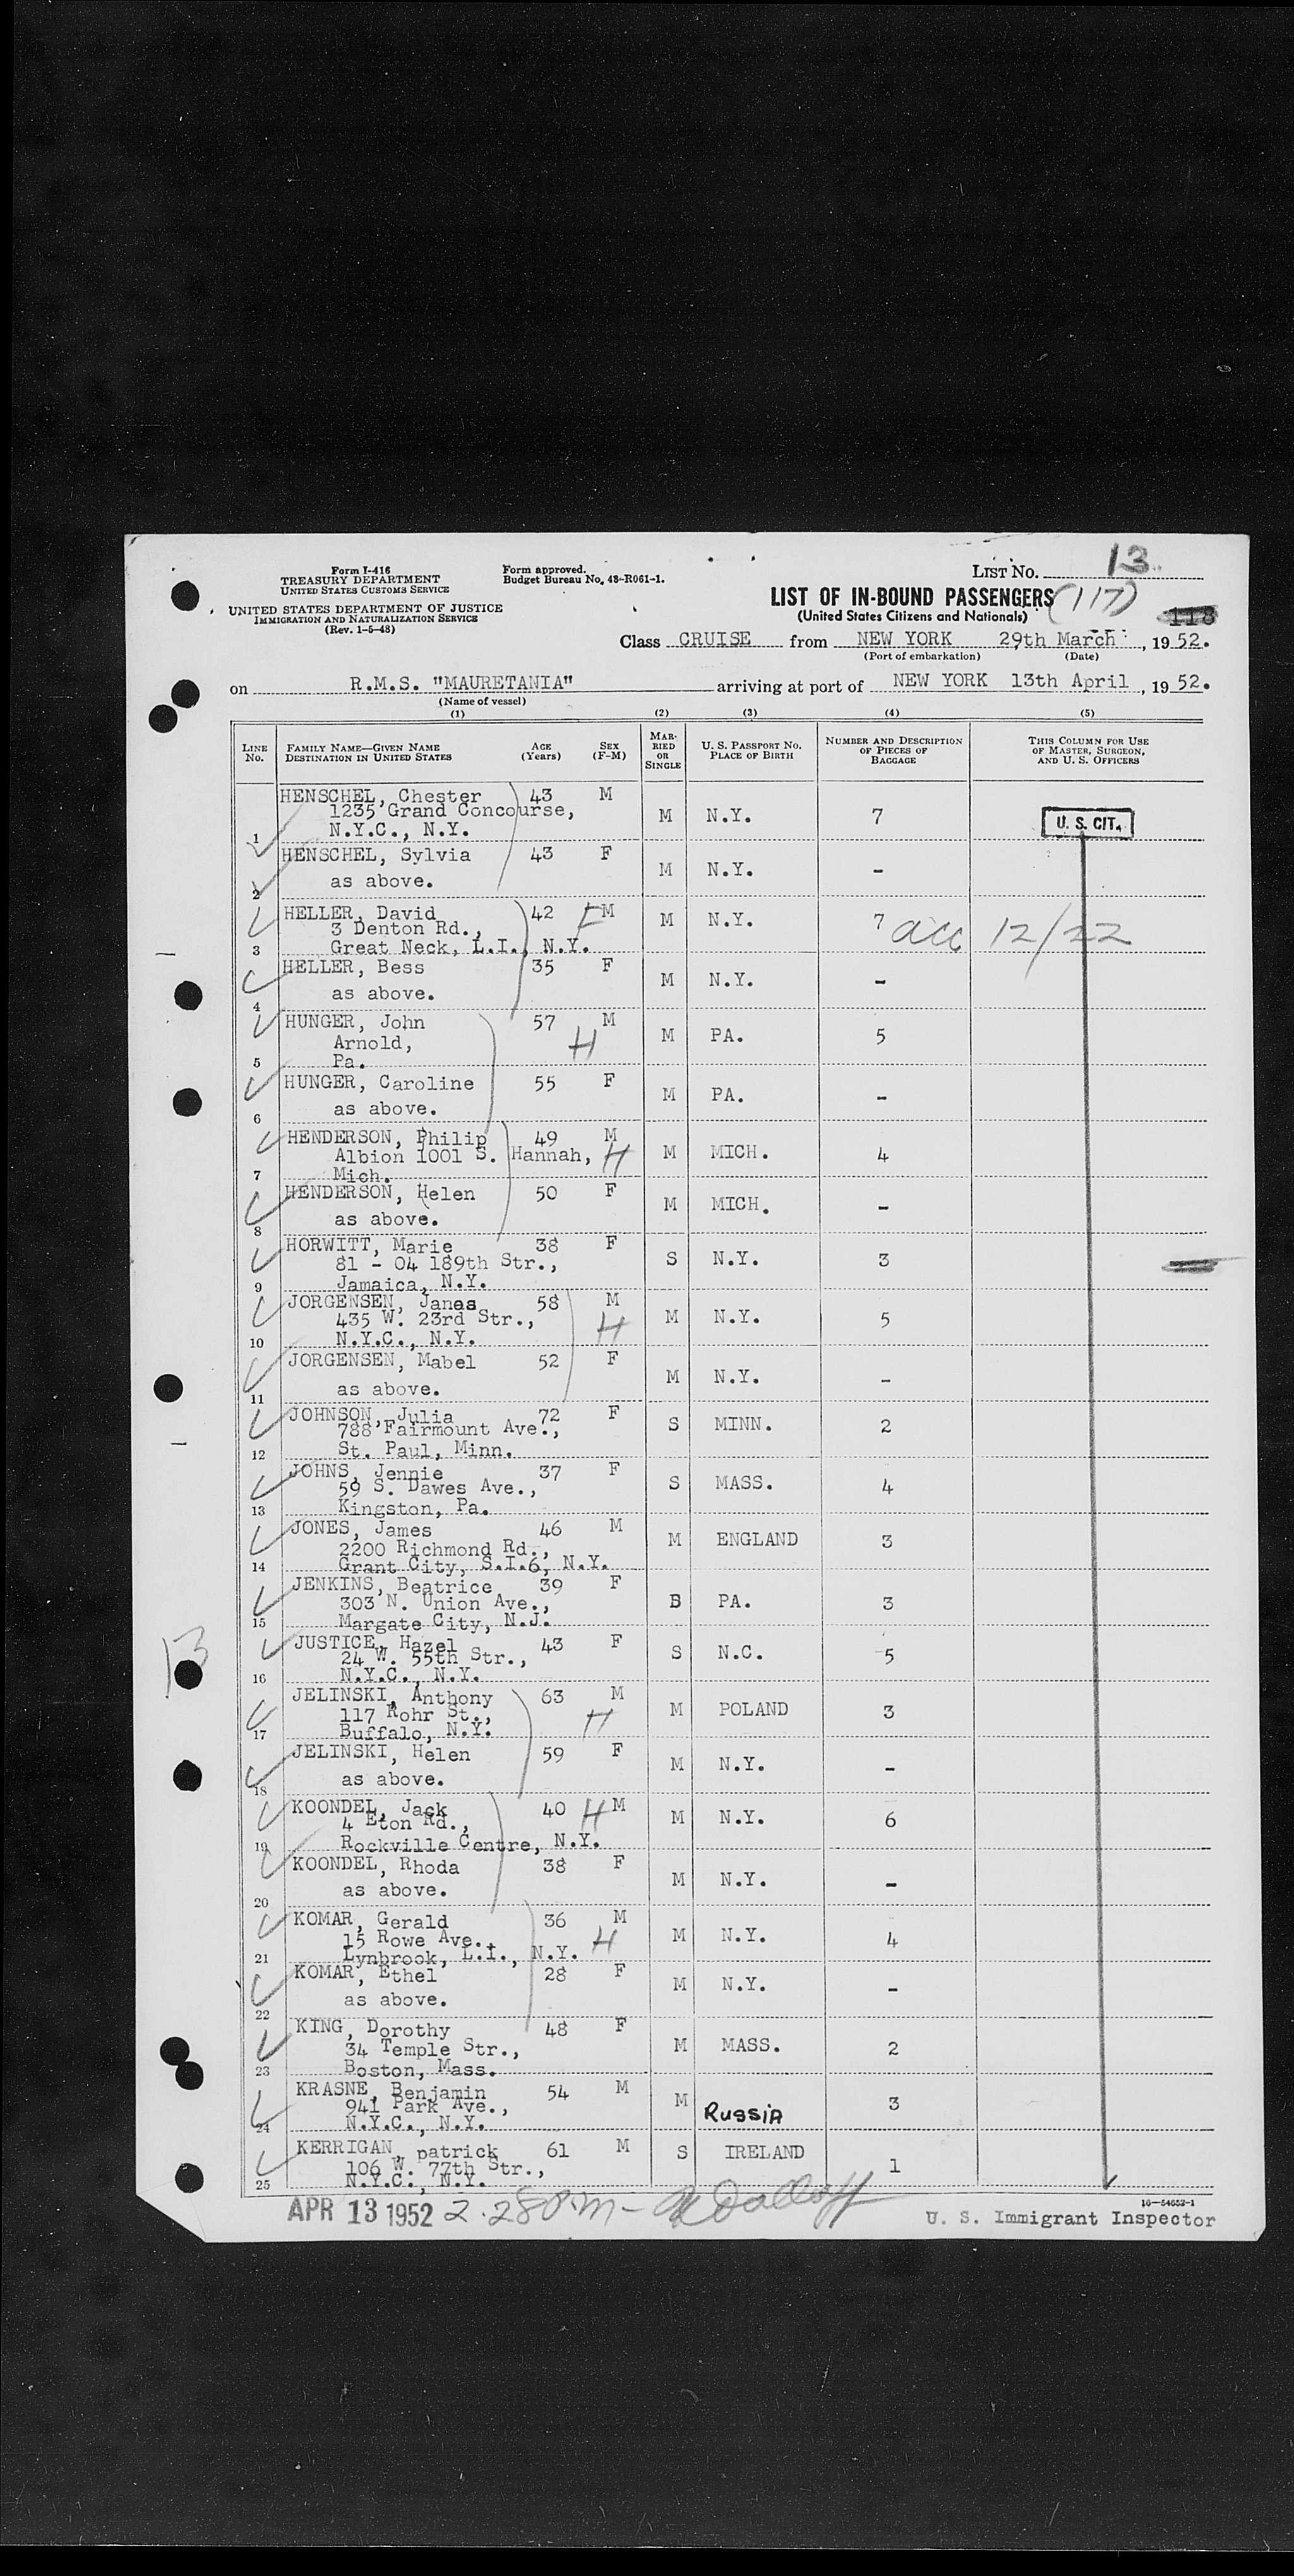 Form I-416
TREASURY DEPARTMENT
UNITED STATES CUSTOMS SERVICE
UNITED STATES DEPARTMENT OF JUSTICE
IMMIGRATION AND NATURALIZATION SERVICE
(Rev. 1-5-48)
Form approved.
Budget Bureau No. 43-R061-1.
LIST NO. 13
LIST OF IN-BOUND PASSENGERS (117)
(United States Citizens and Nationals) 118
Class CRUISE from NEW YORK 29th March, 1952.
(Port of embarkation) (Date)
on R.M.S. "MAURETANIA" arriving at port of NEW YORK 13th April, 1952.
(Name of vessel)
(1) (2) (3) (4) (5)
LINE NO. FAMILY NAME—GIVEN NAME DESTINATION IN UNITED STATES AGE (Years) SEX (F-M) MARRIED OR SINGLE U. S. PASSPORT NO. PLACE OF BIRTH NUMBER AND DESCRIPTION OF PIECES OF BAGGAGE THIS COLUMN FOR USE OF MASTER, SURGEON, AND U. S. OFFICERS
HENSCHEL, Chester 43 M
1235 Grand Concourse,
1 N.Y.C., N.Y. M N.Y. 7 U. S. CIT.
HENSCHEL, Sylvia 43 F
2 as above. M N.Y. -
HELLER, David 42 M
3 Denton Rd., M N.Y. 7 acc 12/22
3 Great Neck, L.I., N.Y.
HELLER, Bess 35 F
4 as above. M N.Y. -
HUNGER, John 57 M
Arnold, H M PA. 5
5 Pa.
HUNGER, Caroline 55 F
6 as above. M PA. -
HENDERSON, Philip 49 M
Albion 1001 S. Hannah, H M MICH. 4
7 Mich.
HENDERSON, Helen 50 F
8 as above. M MICH. -
HORWITT, Marie 38 F
81 - 04 189th Str., S N.Y. 3
9 Jamaica, N.Y.
JORGENSEN, Janes 58 M
435 W. 23rd Str., H M N.Y. 5
10 N.Y.C., N.Y.
JORGENSEN, Mabel 52 F
11 as above. M N.Y. -
JOHNSON, Julia 72 F
788 Fairmount Ave., S MINN. 2
12 St. Paul, Minn.
JOHNS, Jennie 37 F
59 S. Dawes Ave., S MASS. 4
13 Kingston, Pa.
JONES, James 46 M
2200 Richmond Rd., M ENGLAND 3
14 Grant City, S.I.6, N.Y.
JENKINS, Beatrice 39 F
303 N. Union Ave., B PA. 3
15 Margate City, N.J.
13
JUSTICE, Hazel 43 F
24 W. 55th Str., S N.C. 5
16 N.Y.C., N.Y.
JELINSKI, Anthony 63 M
117 Rohr St., H M POLAND 3
17 Buffalo, N.Y.
JELINSKI, Helen 59 F
18 as above. M N.Y. -
KOONDEL, Jack 40 H M
4 Eton Rd., M N.Y. 6
19 Rockville Centre, N.Y.
KOONDEL, Rhoda 38 F
20 as above. M N.Y. -
KOMAR, Gerald 36 M
15 Rowe Ave., H M N.Y. 4
21 Lynbrook, L.I., N.Y.
KOMAR, Ethel 28 F
22 as above. M N.Y. -
KING, Dorothy 48 F
34 Temple Str., M MASS. 2
23 Boston, Mass.
KRASNE, Benjamin 54 M
941 Park Ave., M RUSSIA 3
24 N.Y.C., N.Y.
KERRIGAN, patrick 61 M S IRELAND
106 W. 77th Str., 1
25 N.Y.C., N.Y.
APR 13 1952 2.28 P.M -
16—54652-1
U. S. Immigrant Inspector